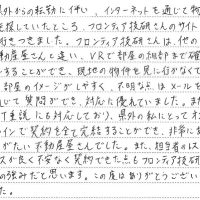 県外からの転勤に伴い、インターネットを通じて物
を探していたところ、フロンティア技研さんのサイト
行きつきました。フロンティア技研さんは、他の
動産屋さんと違い、VRで部屋の細部まで確
することができ、現地の物件を見に行かなくて
部屋のイメージがしやすく、不明な点はメールを
じて質問ができ、対応に優れていました。また
IT重説にも対応しており、県外の私にとってオン
インで契約を全て完結することができ、非常にあ
がたい不動産屋さんでした。また、担当者のレス
スが良く不安なく契約できた点もフロンティア技研
の強みだと思います。この度はありがとうござい
た。